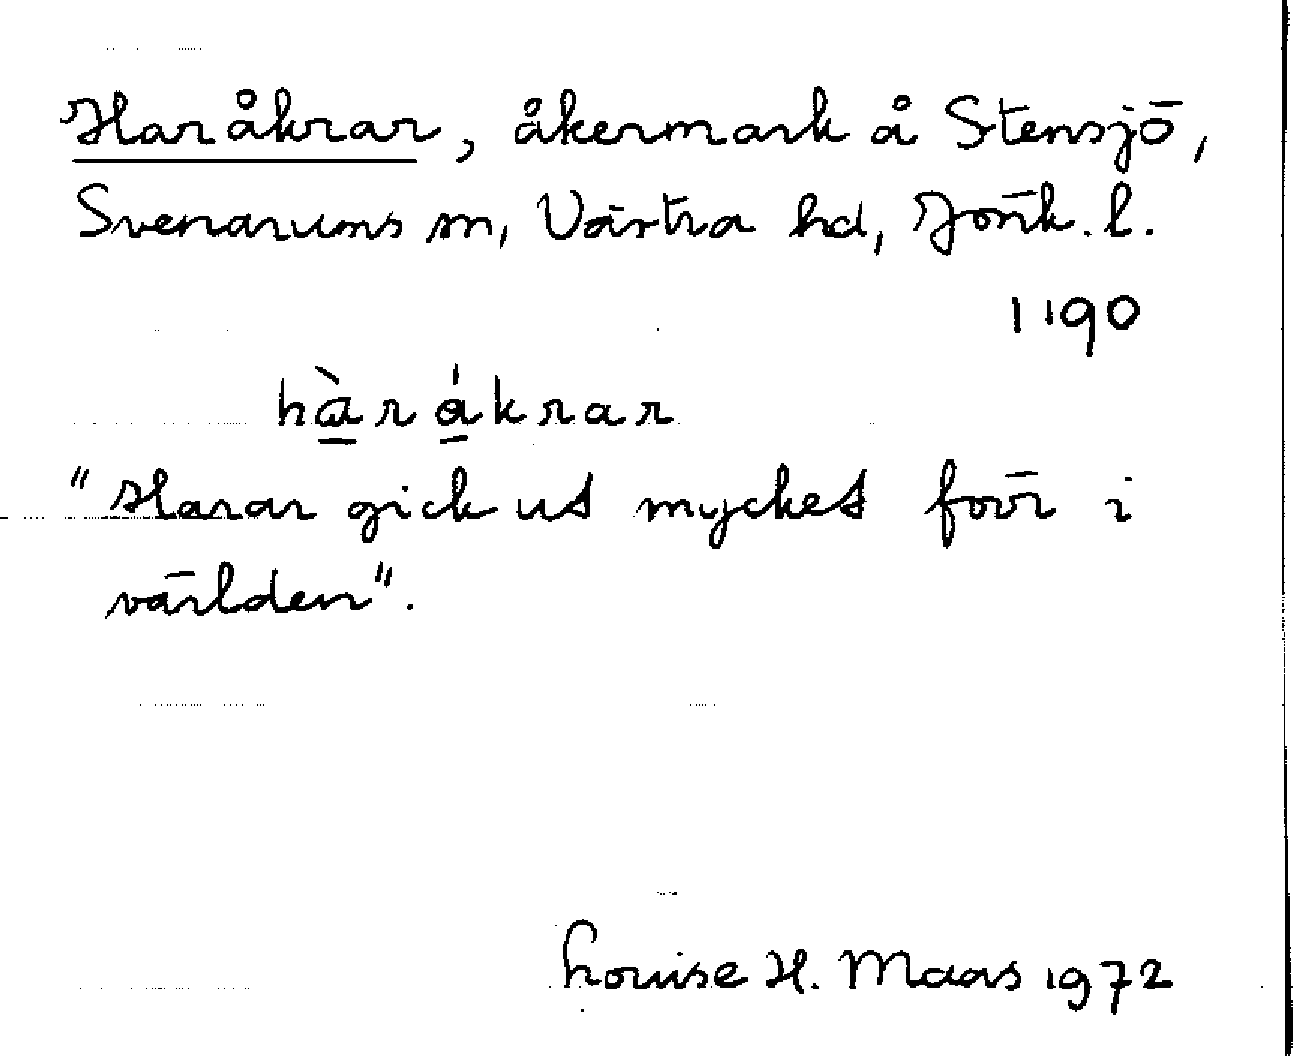 Haråkrar, åkermark å Stensjö,
Svenarums sn, Västra hd, Jönk. l.
1190
hàrákrar
"Harar gick ut mycket förr i
världen".
Louise H. Maas 1972